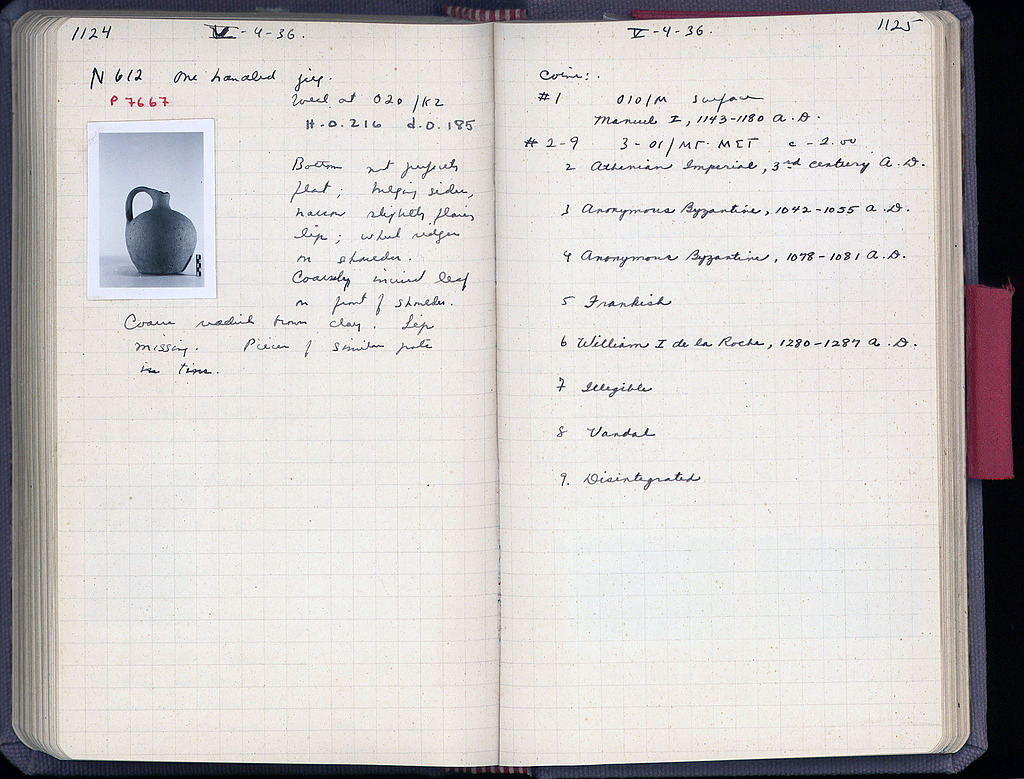 1124
V-4-36.
N 612 One handled jug.
P 7667
Well at O20/KZ
H.0.216 d.0.185
Bottom not perfectly
flat; bulging sides,
narrow slightly flaring
lip; wheel ridges
on shoulder.
Coarsely incised leaf
on front of shoulder.
Coarse reddish brown clay. Lip
missing. Pieces of similar pots
in tins.
V-4-36.
1125
Coins:
#1 O10/M Surface
Manuel I, 1143-1180 A.D.
#2-9 3-OΙ/ΜΓ-ΜΣΤ c-2.00
2 Athenian Imperial, 3rd century A.D.
3 Anonymous Byzantine, 1042-1055 A.D.
4 Anonymous Byzantine, 1078-1081 A.D.
5 Frankish
6 William I de la Roche, 1280-1287 A.D.
7 Illegible
8 Vandal
9. Disintegrated